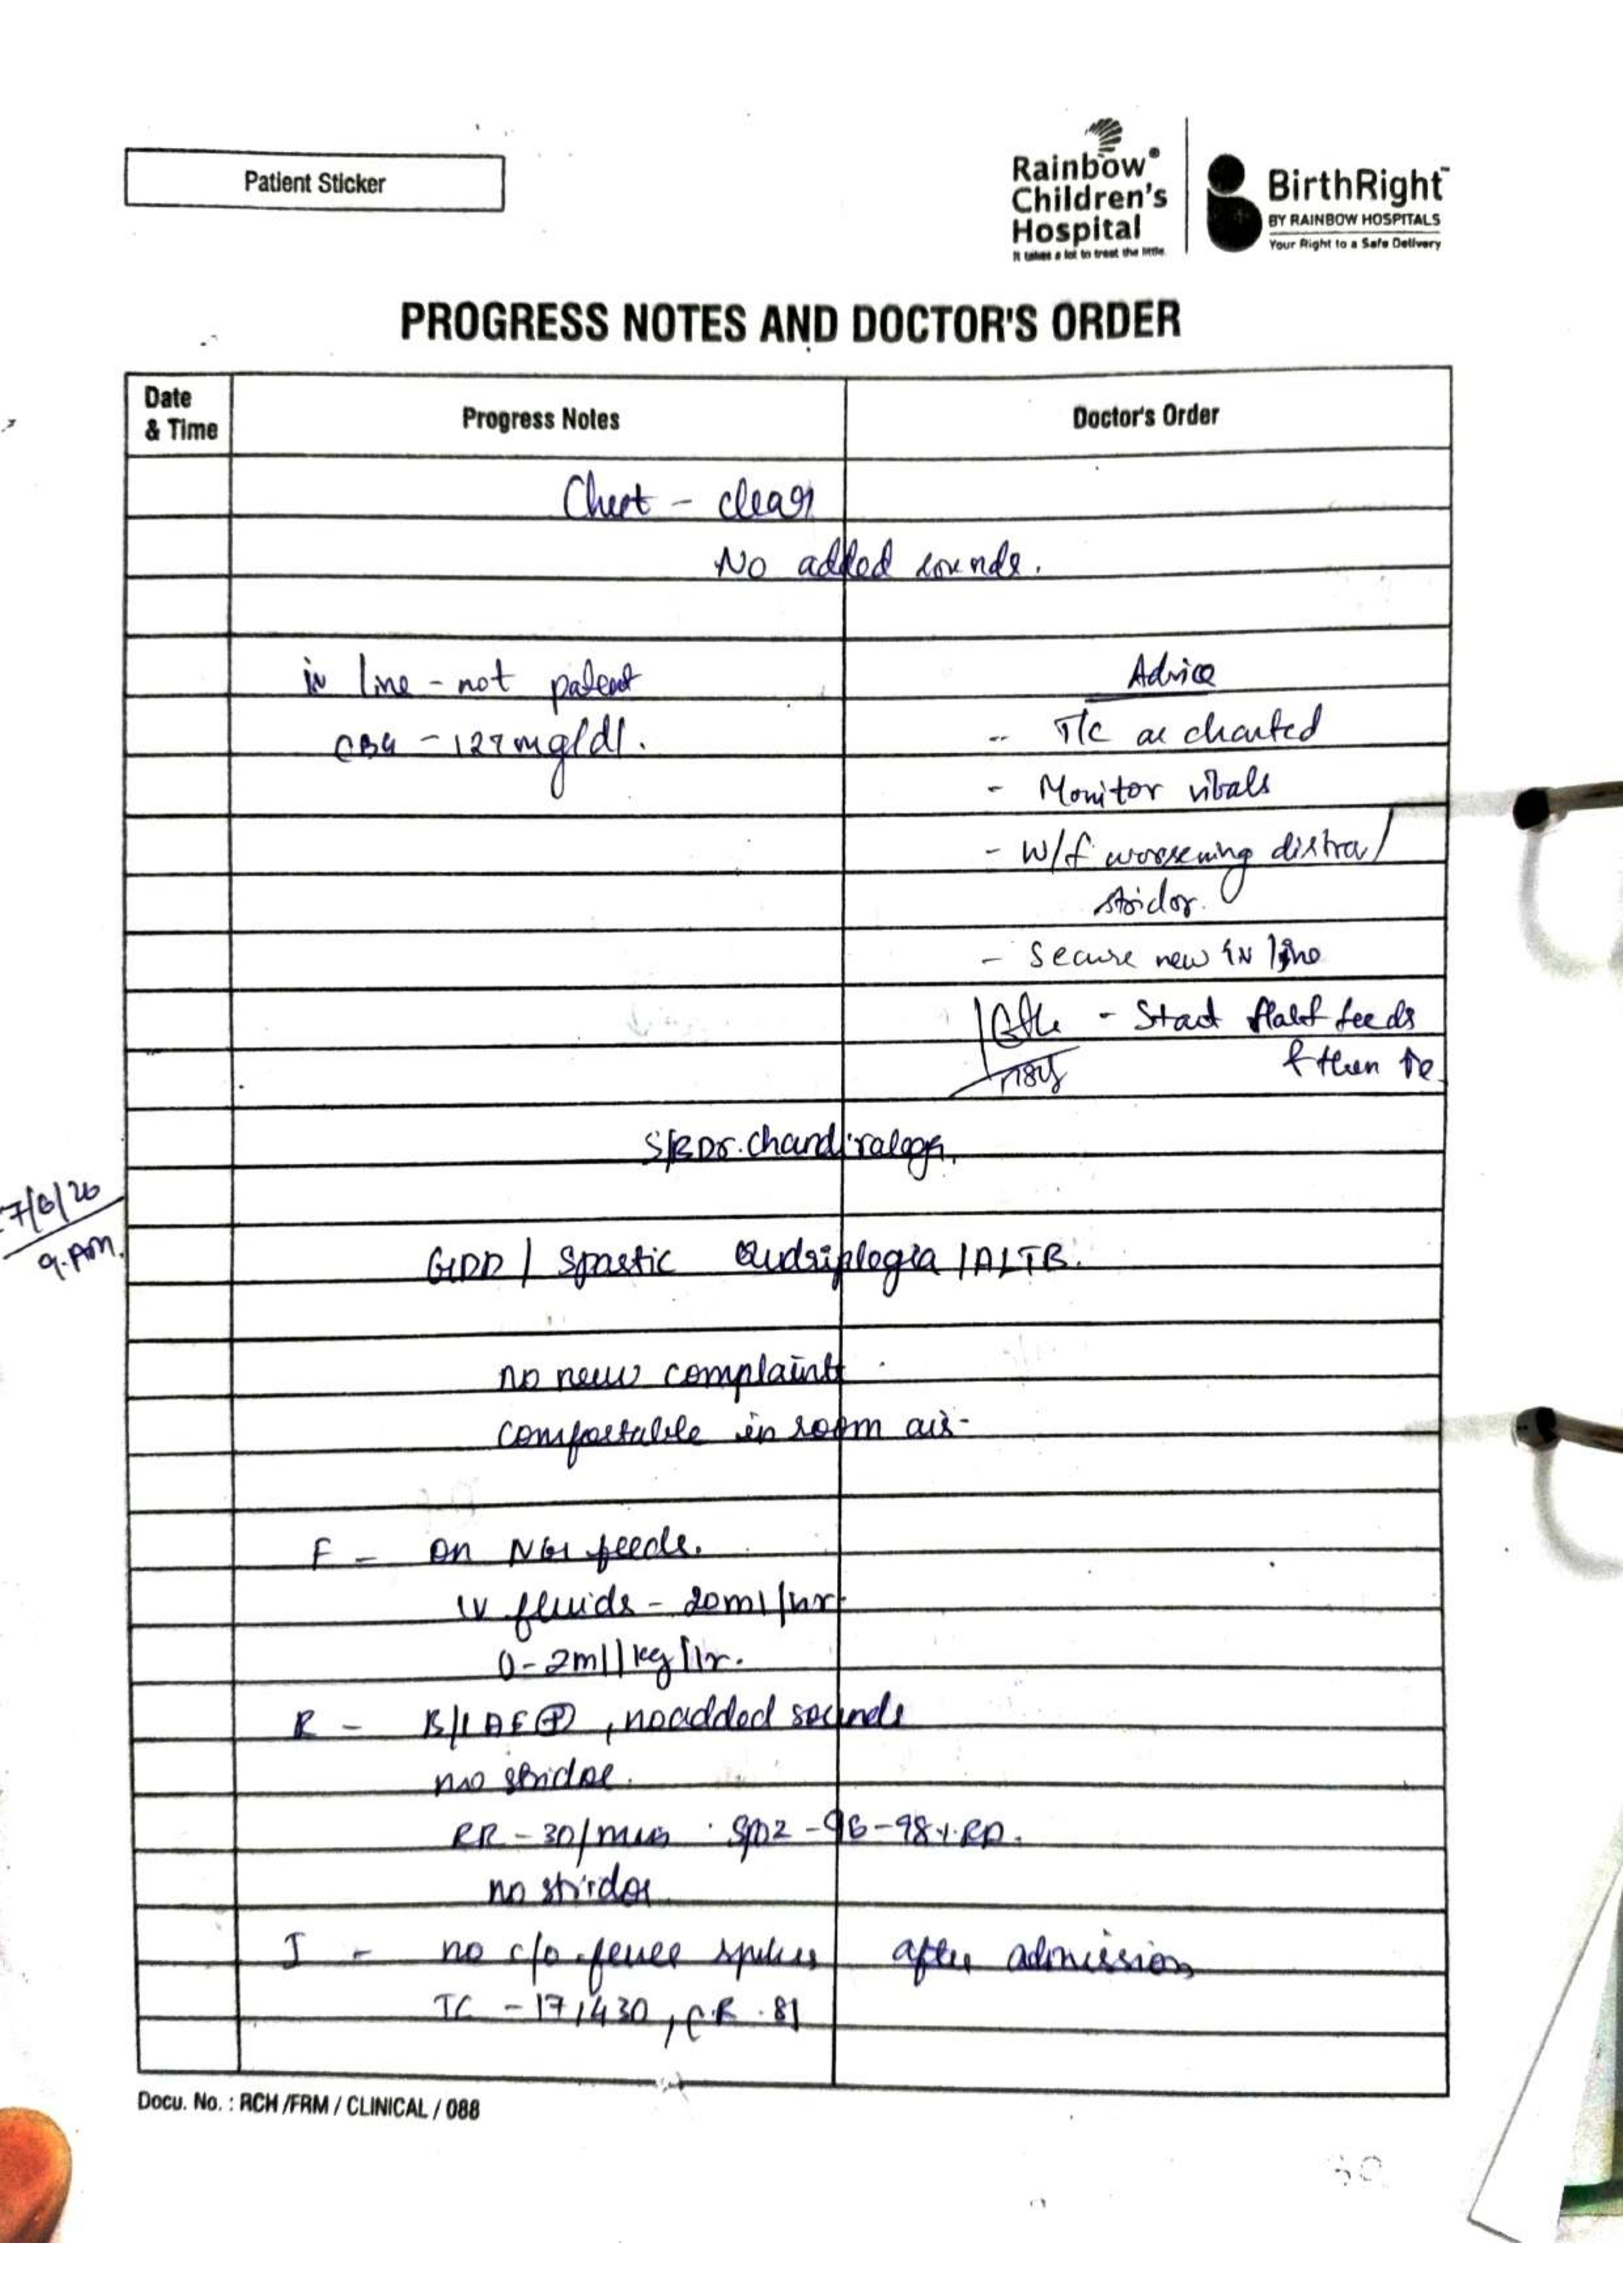 Patient Sticker
Rainbow®
Children's
Hospital
It takes a lot to treat the little.
BirthRight™
BY RAINBOW HOSPITALS
Your Right to a Safe Delivery
PROGRESS NOTES AND DOCTOR'S ORDER
Date & Time
Progress Notes
Doctor's Order
Chest - clear
No added sounds.
iv line - not patent
CBG - 127 mg/dl.
Advice
- T/C as charted
- Monitor vitals
- W/f worsening distress/
stridor.
- Secure new IV line
- Start Half feeds
& then ↑e
S/B Dr. Chandiralega.
7/6/26
9.AM.
GDD / Spastic Qudriplegia / ALTB.
no new complaints
comfortable in room air.
F - On NG feeds.
IV fluids - 20ml/hr
0-2ml/kg/hr.
R - B/L AE⊕, no added sounds
no stridor.
RR - 30/min . SpO2 - 96-98% RA.
no stridor
I - no c/o fever spikes after admission
TC - 17,430, CR. 81
Docu. No. : RCH /FRM / CLINICAL / 088